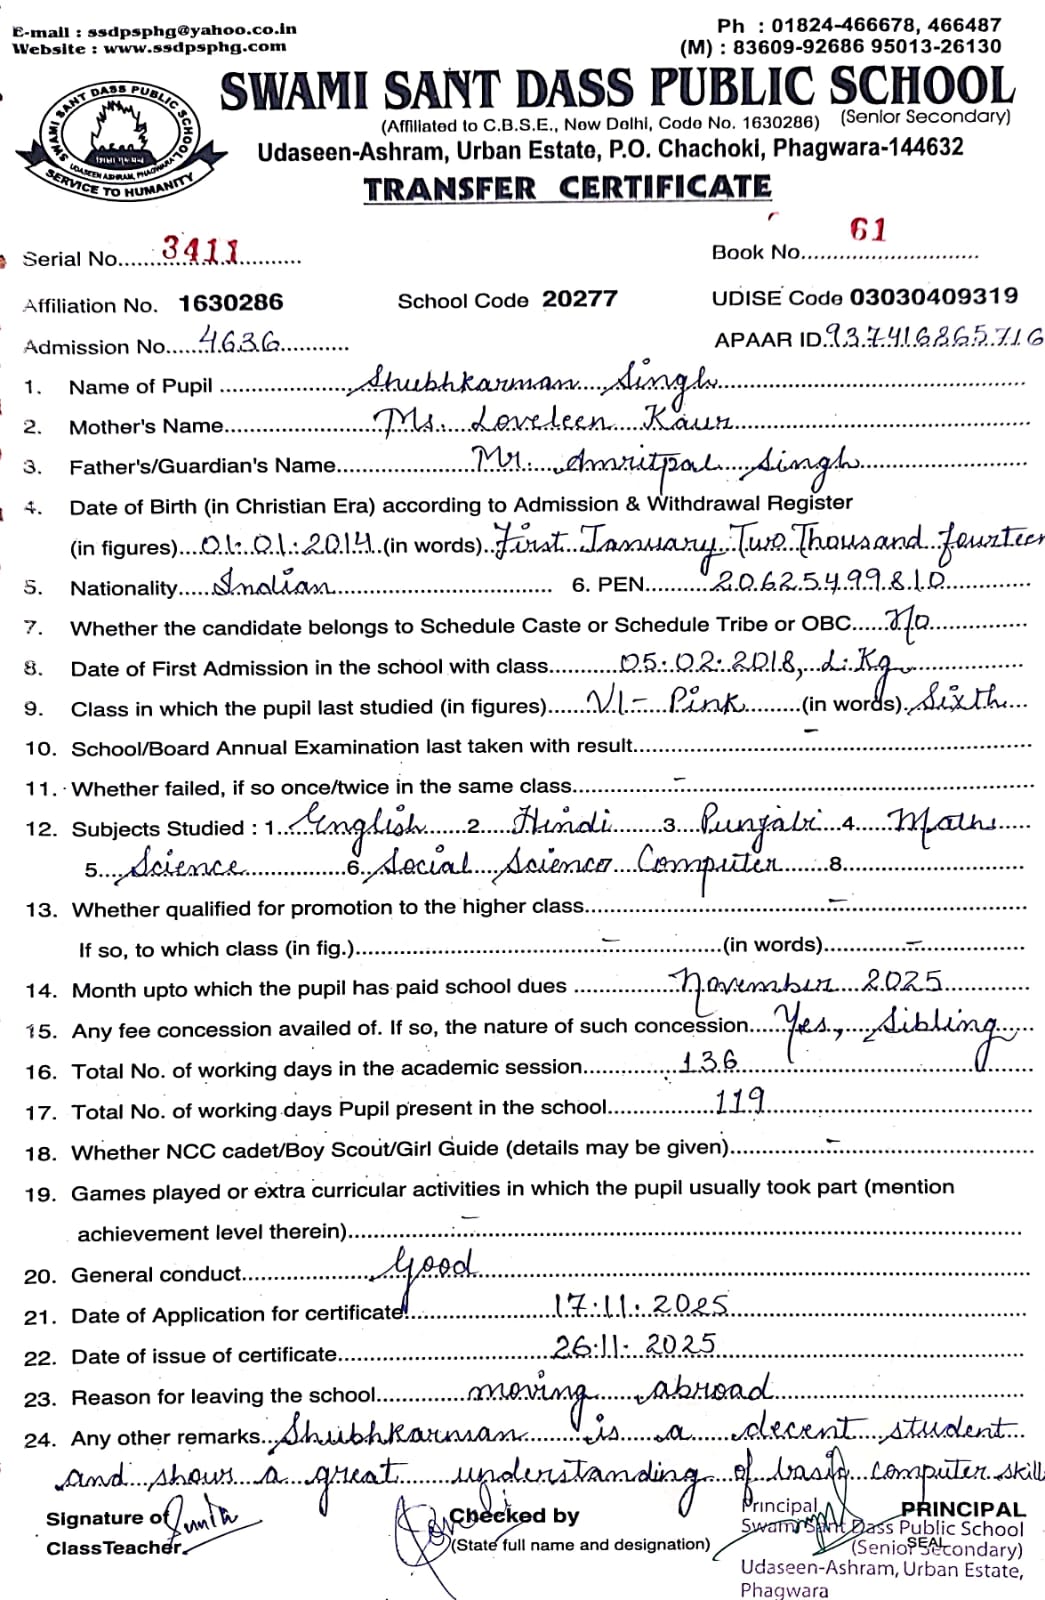 E-mail : ssdpsphg@yahoo.co.in
Website : www.ssdpsphg.com
Ph : 01824-466678, 466487
(M) : 83609-92686 95013-26130
SWAMI SANT DASS PUBLIC SCHOOL
(Affiliated to C.B.S.E., New Delhi, Code No. 1630286) (Senior Secondary)
Udaseen-Ashram, Urban Estate, P.O. Chachoki, Phagwara-144632
SWAMI SANT DASS PUBLIC SCHOOL
UDASEEN ASHRAM, PHAGWARA
SERVICE TO HUMANITY
TRANSFER CERTIFICATE
Serial No. 3411 Book No. 61
Affiliation No. 1630286 School Code 20277 UDISE Code 03030409319
Admission No. 4636 APAAR ID 937416865716
1. Name of Pupil Shubhkarman Singh
2. Mother's Name Ms. Loveleen Kaur
3. Father's/Guardian's Name Mr. Amritpal Singh
4. Date of Birth (in Christian Era) according to Admission & Withdrawal Register
(in figures) 01.01.2014 (in words) First January Two Thousand fourteen
5. Nationality Indian 6. PEN 20625499810
7. Whether the candidate belongs to Schedule Caste or Schedule Tribe or OBC No
8. Date of First Admission in the school with class 05.02.2018, L.Kg
9. Class in which the pupil last studied (in figures) VI- Pink (in words) Sixth
10. School/Board Annual Examination last taken with result -
11. Whether failed, if so once/twice in the same class -
12. Subjects Studied : 1. English 2. Hindi 3. Punjabi 4. Maths
5. Science 6. Social Science Computer 8.
13. Whether qualified for promotion to the higher class -
If so, to which class (in fig.) - (in words) -
14. Month upto which the pupil has paid school dues November 2025
15. Any fee concession availed of. If so, the nature of such concession Yes, Sibling
16. Total No. of working days in the academic session 136
17. Total No. of working days Pupil present in the school 119
18. Whether NCC cadet/Boy Scout/Girl Guide (details may be given) -
19. Games played or extra curricular activities in which the pupil usually took part (mention
achievement level therein) -
20. General conduct Good
21. Date of Application for certificate 17.11.2025
22. Date of issue of certificate 26.11.2025
23. Reason for leaving the school moving abroad
24. Any other remarks Shubhkarman is a decent student
and shows a great understanding of basic computer skill
Signature of
Class Teacher
Checked by
(State full name and designation)
PRINCIPAL
SEAL
Principal
Swami Sant Dass Public School
(Senior Secondary)
Udaseen-Ashram, Urban Estate,
Phagwara